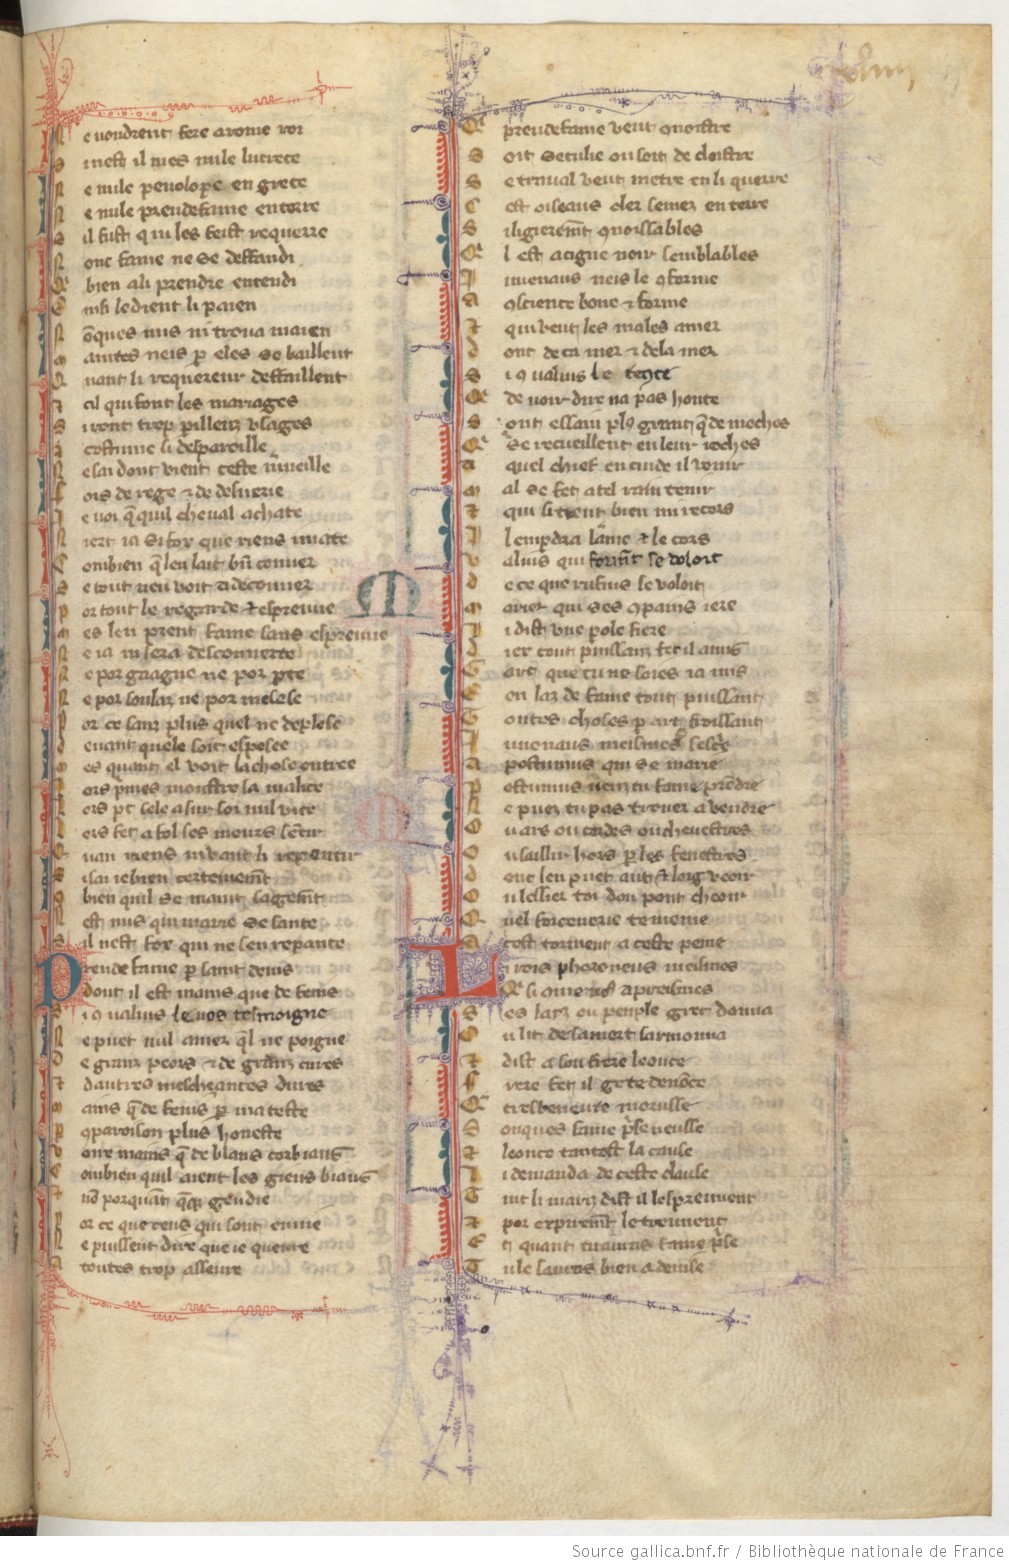 N e vondrent fere avome voi
S i nest il mes nule lucrece
N e nule penolope en grece
N e nule preudefame en terre
S il fust qui les feist requerre
N onc fame ne se deffandi
Q bien a li prendre entendi
E insi le dient li paien
N õques nus ni trova maien
M aintes neis p eles se baillent
Q uant li requereur deffaillent
T cil qui font les mariages
S i ront trop pilleux usages
A costume si despareille
Q e lai dont vient ceste m̃veille
F ois de rage et de desverie
I e voi q̃ quil cheval achate
N iert ia si fox que riens i mate
C ombien q̃ len lait bñ couver
S e tout neu voit a descouver
P or tout le regarde et esprueve
M es len prent fame sans esprueve
N e ia ni sera descouverte
N e por gaagne ne por pte
N e por soulaz ne por mesese
P or ce sanz plus quel ne desplese
D evant quele soit esposee
Q es quant el voit la chose outree
L ors pmes monstre la malice
L ors pt sele a sur soi nul vice
L ors fet a fol ses meurs sentir
Q uan riens ni vaut li repentir
S i sai ie bien certenement
C bien quil se maint sagement
N est nus qui marie se sante
S il nest fox qui ne sen repante
Preude fame p saint denis
Dont il est mains que de fenis
S i q̃ valius le vos tesmoigne
N e puet nul amer q̃l ne poigne
D e granz peors et de granz cures
T dautres mescheances dures
M ains q̃ de fenis p ma teste
P q̃paroison plus honeste
V oire mains q̃ de blans corbiaus
C ombien quil aient les cors biaus
T nõ porquãt q̃ q̃ gen die
P or ce que ceus qui sont en vie
N e puissent dire que ie queure
A toutes trop asseure
Q preudefame veut quoistre
S oit seculie ou soit de cloistre
S e traval veut metre en li querre
C est oiseaus cler semez en terre
S i ligierem̃t q̃noissables
Q l est a cigne noir semblables
I uuenaus neis le q̃forme
A q̃science bone et forme
T qui veut les males amer
D ont de ca mer et de la mer
S i q̃ valius le texte
Q de voir dire na pas honte
S ont essain pl9 grant q̃ de moches
Q se recueillent en leur roches
A quel chief en cuide il venir
M al se fet a tel rain tenir
T qui si tient bien mi recors
I l em pdra lame et le cors
V alius qui forment se doloit
D e ce que rufins se voloit
M arier qui ses q̃pains iere
I i dist une pole fiere
D iex tout puissanz fet il amis
G art que tu ne soies ia mis
E en laz de fame tout puissant
G outes choses p art froissant
I uuenaus meismes sescrie
A postumus qui se marie
P ostumus veuz tu fame prendre
N e puez tu pas trover a vendre
O u ars ou cordes ou chevestres
O u saillir hors p les fenestres
D onc len puet aut et loig veoir
O u lessier toi dou pont cheoir
Q uel forcenerie te meine
A cest torment a ceste peine
Li rois phoroneus meismes
Q si q̃me nos apreismes
S es lays ou peuple grec donna
O u lit de sa mort sarmonna
T dist a son frere leonce
F rere fet il ge te denõce
Q tresbeneure morusse
S onques fame p̃se neusse
T leonce tantost la cause
L i demanda de ceste clause
T uit li mariz dist il lespruevent
T por expirem̃t le truevent
E t quant tu auras fame p̃se
T u le sauras bien a devise
Source gallica.bnf.fr / Bibliothèque nationale de France